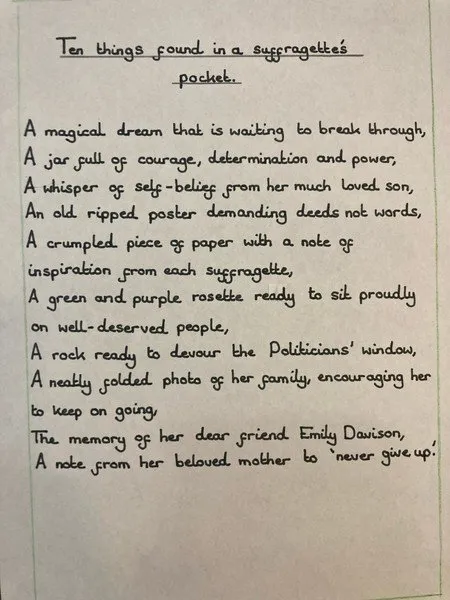 Ten things found in a suffragette's
pocket.
A magical dream that is waiting to break through,
A jar full of courage, determination and power,
A whisper of self-belief from her much loved son,
An old ripped poster demanding deeds not words,
A crumpled piece of paper with a note of
inspiration from each suffragette,
A green and purple rosette ready to sit proudly
on well-deserved people,
A rock ready to devour the Politicians' window,
A neatly folded photo of her family, encouraging her
to keep on going,
The memory of her dear friend Emily Davison,
A note from her beloved mother to 'never give up.'